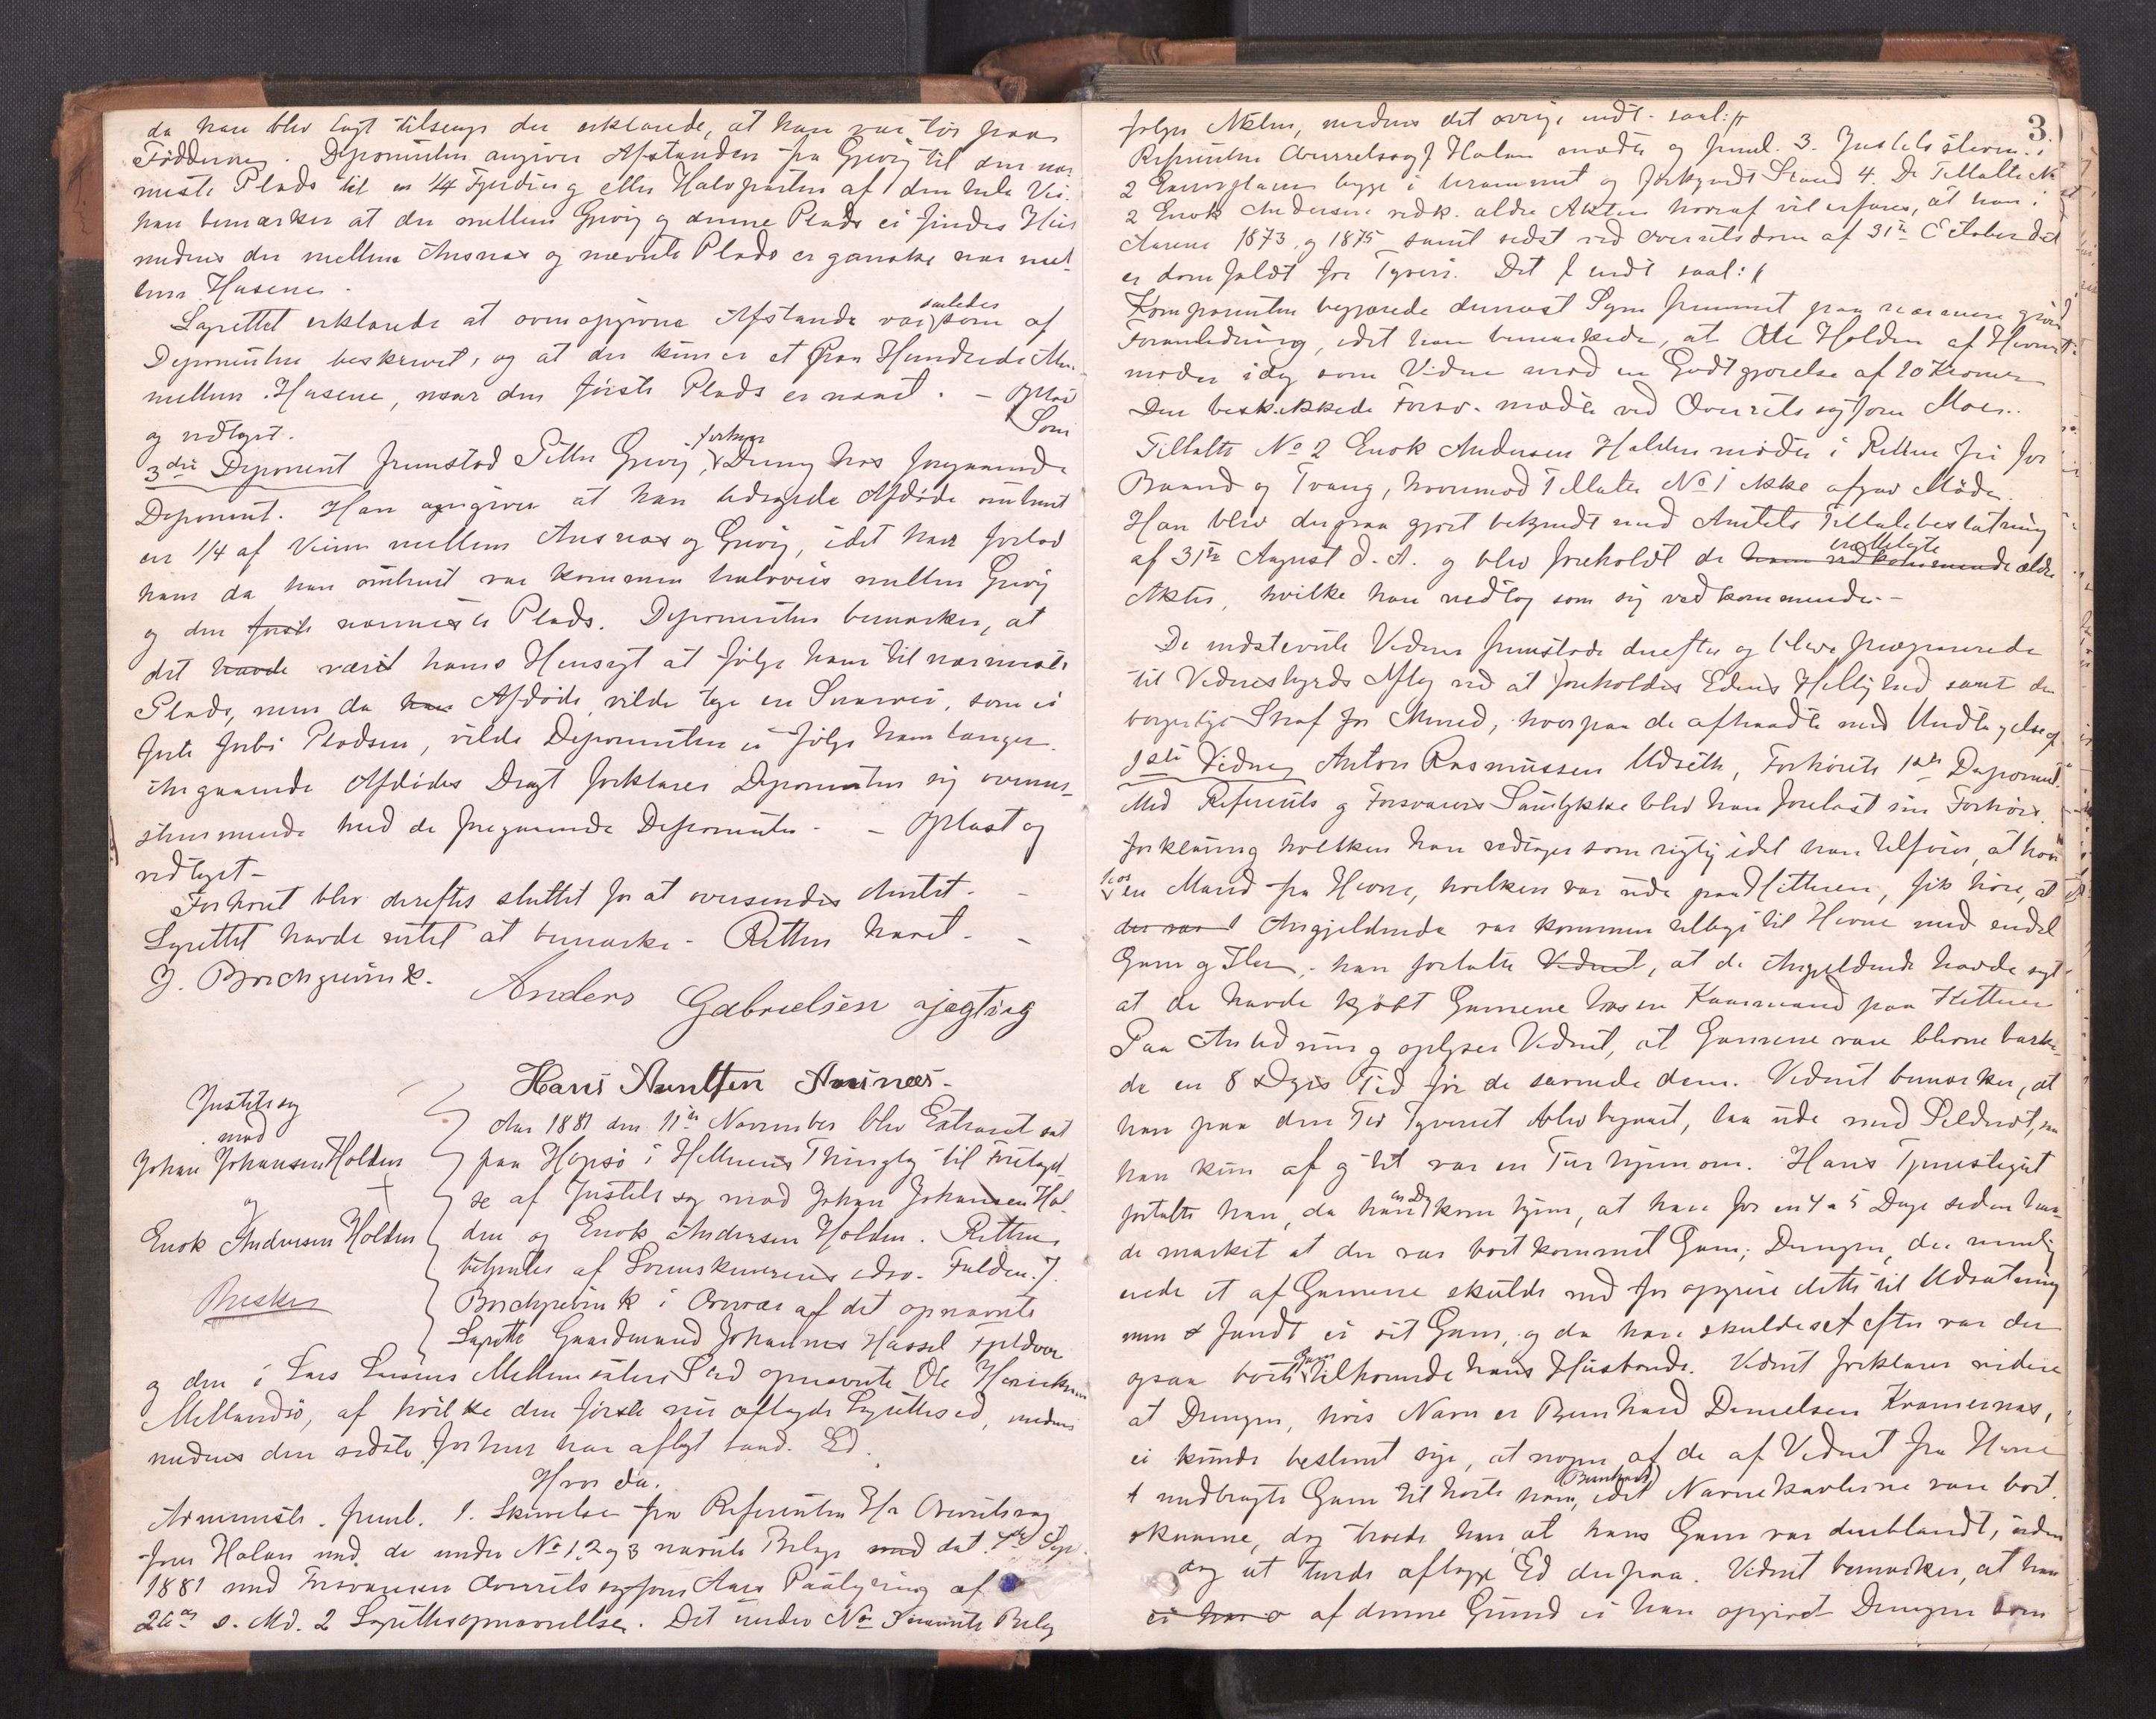 da han blev lagt tilsengs der erklærede, at han var tør paa
Fødderne. Deponenten angiver Afstanden fra Grevig til den nær
meste Plads til en 1/4 Fjerding eller Halvparten af den hele Vei.
han bemærker at der mellem Grevig og denne Plads ei findes Huse
medens der mellem Ansnæs og nævnte Plads er ganske nær mel-
lem Husene.
Lagrettet erklærede at ovenopgivne Afstande var saaledes som af
Deponenten beskrevet, og at der kun er et Par Hundrede
mellem Husene, naar den første Plads er naaet. - Oplæst
og vedtaget. Som
3die Deponent fremstod Petter Grevig, forhen Dreng hos foregaaende
Deponent. Han angiver at han ledsagede Afdøde omtrent
en 1/4 af Veien mellem Ansnæs og Grevig, idet han forlod
ham da han omtrent var kommen halvveis mellem Grevig
og den første nærmeste Plads. Deponenten bemærker, at
det havde været hans Hensigt at følge ham til nærmeste
Plads, men da han Afdøde vilde tage en Snarvei, som ei
førte forbi Pladsen, vilde Deponenten ei følge ham længer.
Angaaende Afdødes Dragt forklarer Deponenten sig overens-
stemmende med de foregaaende Deponenter. - Oplæst og
vedtaget -
Forhøret blev derefter sluttet for at oversendes Amtet. -
Lagrettet havde intet at bemærke - Retten hævet. -
J. Borchgrevink. Anders Gabrielsen
Hans Arntsen Ansnæs.
Justitssag
mod
Johan Johansen Holden
og
Enok Andersen Holden
Aar 1881 den 11te November blev Extraret sat
paa Hopsø i Hitterens Thinglag til Foretagel
se af Justitssag mod Johan Johansen Hol-
den og Enok Andersen Holden. Retten
betjentes af Sorenskriverens edsv. Fuldm. J.
Borchgrevink i Overvær af det opnævnte
Lagrette Gaardmand Johannes Hassel Fjeldvær
og den i Lars Larsens Sted opnævnte Ole Henriksen
Mellandsø, af hvilke den første nu aflagde Lagrettesed, medens
medens den sidste forhen har aflagt saad. Ed.
Hvor da.
Administr. freml. 1. Skrivelse fra Referenten Hr Overretssag
fører Holan med de under No 1, 2 og 3 nævnte Bilage med dat. 4de Sept.
1881 med Forsvareren Overretssagfører Paategning af
26de s. Md. 2 Lagrettesopnævnelse. Det under No 3 nævnte Bilag
3.
følger Akten, medens det øvrige indt. saal:
Referenten Overretssagf Holan mødte og freml. 3. Justitsstevn. i
2 Exemplarer begge i berammet og forkyndt Stand 4. De Tiltalte No
2 Enok Andersen vedk. ældre Akter hvoraf vil erfares, at han i
Aarene 1873 og 1875 samt sidst ved Overretsdom af 31te October
er domfældt for Tyveri. Det indt saal:
Komparenten begjærede dernæst Sagen fremmet paa nærmere given
Foranledning, idet han bemærkede, at Ole Holden af Hevne
møder idag som Vidne mod en Godtgjørelse af 10 Kroner
Den beskikkede Forsv. mødte ved Overretssagfører Moe.
Tiltalte No 2 Enok Andersen Holden møder i Retten fri for
Baand og Tvang, hvorimod Tiltalte No 1 ikke afgav Møde.
Han blev derpaa gjort bekjendt med Amtets Tiltalebeslutning
af 31te August d. A. og blev foreholdt de ham vedkommende ældre
Akter, hvilke han vedtog som sig vedkommende -
De indstevnte Vidner fremstode derefter og bleve præparerede
til Vidnesbyrds Aflæg ved at foreholdes Edens Hellighed samt den
borgerlige Straf for Mened, hvorpaa de aftraadte med Undtagelse af
1ste Vidne Anton Rasmussen Udseth, Forhørets 1ste Deponent.
Med Referents og Forsvarers Samtykke blev han forelæst sin Forhørs
forklaring hvilken han vedtager som rigtig idet han tilføier, at han
hos en Mand fra Hevne, hvilken var ude paa Hitteren, fik høre, at
der var Angjeldende var kommen tilbage til Hevne med endel
Garn og Iler, - han fortalte Vidnet, at de Angjeldende havde sagt
at de havde kjøbt Garnene hos en Kaarmand paa Hitteren
Paa Anledning oplyser Vidnet, at Garnene vare blevne barke-
de en 8 Dages Tid før de savnede dem. Vidnet bemærker, at
han paa den Tid Tyveriet blev begaaet, laa ude med Sildnot, men
han kun af og til var en Tur hjemom. Hans Tjenestegut
fortalte ham, da han en Dag kom hjem, at han for en 4 a 5 Dage siden hav-
de mærket at der var bortkommet Garn; Drengen, der nemlig
eiede et af Garnene skulde ned for at gjøre dette til Udsætning
men fandt ei sit Garn, og da han skulde set efter var der
ogsaa borte Garn tilhørende hans Husbonde. Vidnet forklarer videre
at Drengen, hvis Navn er Bernhard Danielsen Kramernæs,
ei kunde bestemt sige, at nogen af de af Vidnet fra Hevne
medbragte Garn tilhørte ham, (Bernhard) idet Navnekavlerne vare bort
skaarne, dog troede han, at hans Garn var deriblandt, uden
dog at turde aflægge Ed derpaa. Vidnet bemærker, at han
ei har af denne Grund ei har opgivet Drengen som